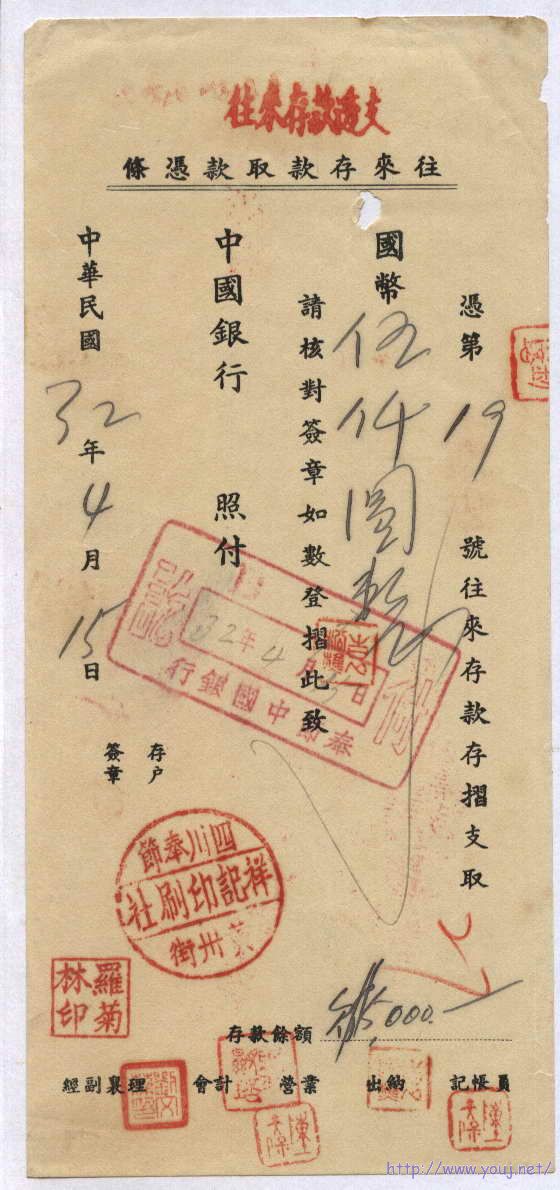 支透款存來往
往來存款取款憑條
憑第 19 號往來存款存摺支取
國幣 伍仟圓整
請核對簽章如數登摺此致
中國銀行 照付
中華民國 32 年 4 月 15 日
存戶
簽章
付訖
32年4月15日
奉節中國銀行
四川奉節
祥記印刷社
卅街
羅菊
林印
存款餘額 ,000.—
經副襄理 會計 營業 出納 記帳員
http://www.youj.net/